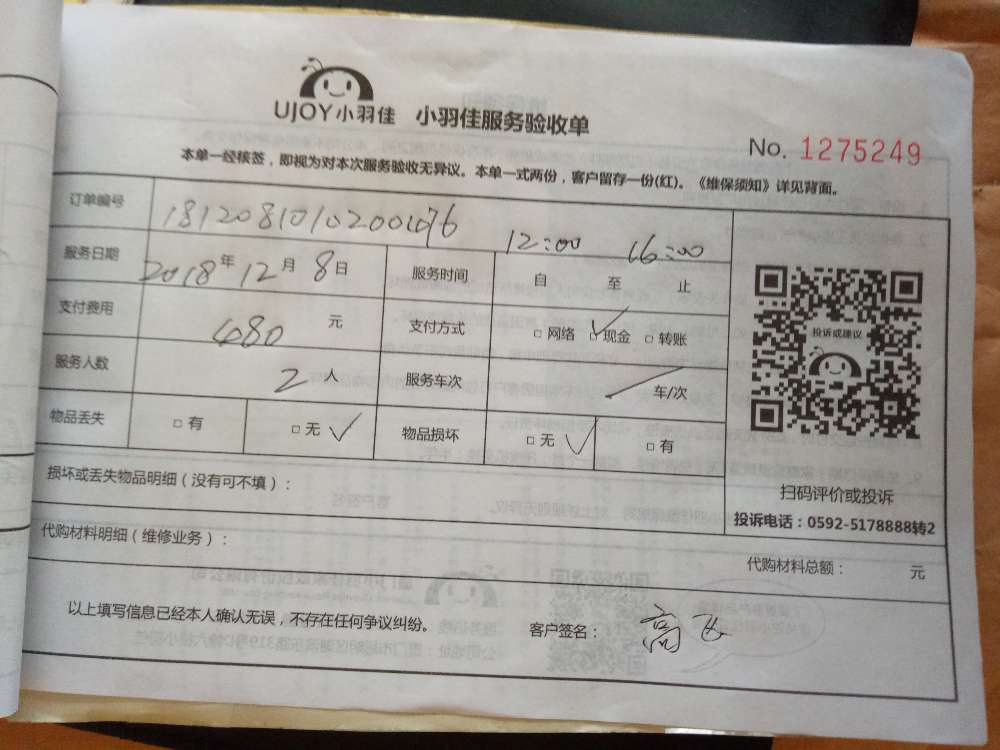 UJOY小羽佳 小羽佳服务验收单
No. 1275249
本单一经核签，即视为对本次服务验收无异议。本单一式两份，客户留存一份(红)。《维保须知》详见背面。
订单编号 18120810102001076
服务日期 2018年12月8日 服务时间 12:00 16:00 自 至 止
支付费用 480 元 支付方式 □ 网络 □ 现金 ✓ □ 转账
服务人数 2 人 服务车次 / 车/次
物品丢失 □ 有 □ 无 ✓ 物品损坏 □ 无 ✓ □ 有
投诉或建议
扫码评价或投诉
投诉电话：0592-5178888转2
损坏或丢失物品明细（没有可不填）：
代购材料明细（维修业务）：
代购材料总额： 元
以上填写信息已经本人确认无误，不存在任何争议纠纷。 客户签名： 高飞